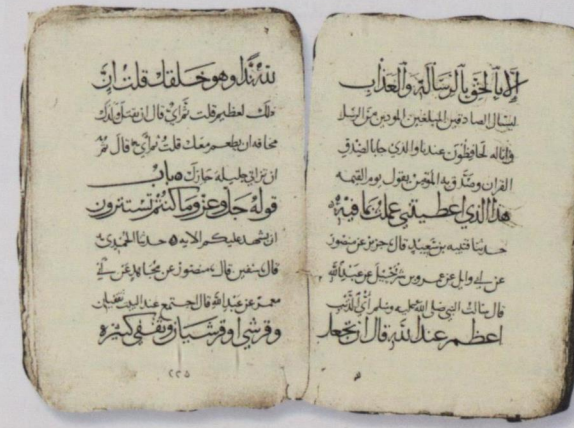 إلا بالحق بالرسالة والعذاب
ليسال الصادقين المبلغين المودين من الرسل
وإنا له لحافظون عندنا والذي جا بالصدق
القران وصدق به المومن يقول يوم القيمه
هذا الذي اعطيتني عملت بما فيه
حدثنا قتيبه بن سعيد قال جرير عن منصور
عن ابي وايل عن عمرو بن شرحبيل عن عبد الله
قال سالت النبي صلى الله عليه وسلم أي الذنب
اعظم عند الله قال ان تجعل
لله ندا وهو خلقك قلت إن
ذلك لعظيم قلت ثم أي قال ان تقتل ولدك
مخافة ان يطعم معك قلت ثم أي قال ثم
ان تزاني حليلة جارك باب
قوله جل وعز وما كنتم تستترون
ان يشهد عليكم الايه حدثنا الحميدي
قال سفين قال منصور عن مجاهد عن ابي
معمر عن عبد الله قال اجتمع عند البيت ثقفيان
وقرشي او قرشيان وثقفي كثيرة
٢٢٥